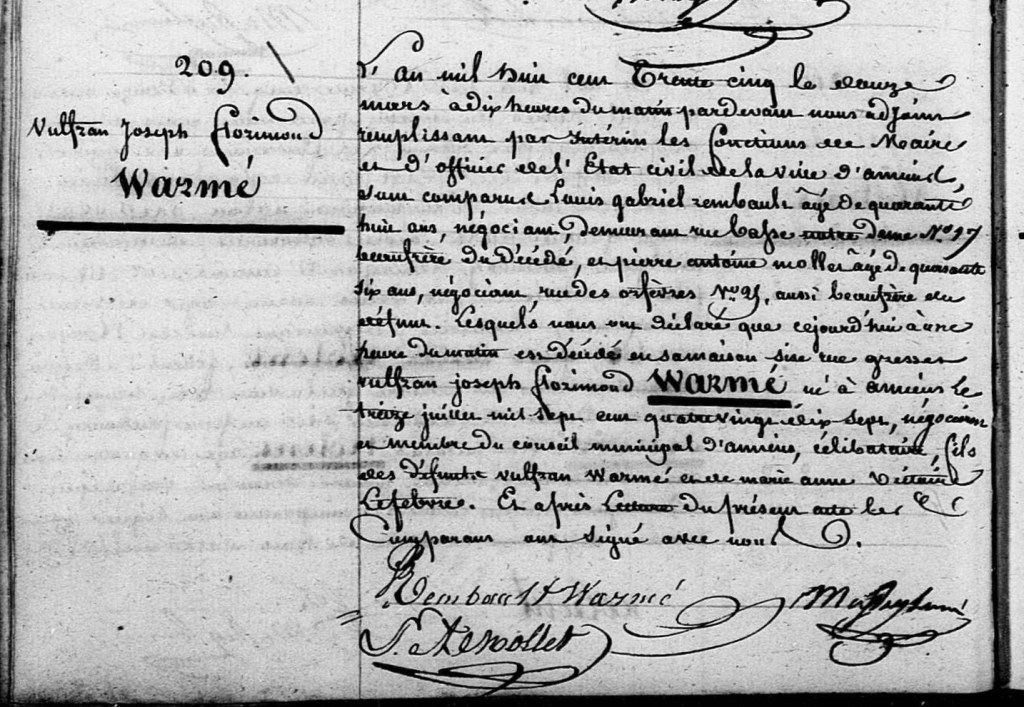 209.
Vulfran Joseph Florimond
Warmé
L'an mil huit cent Trente cinq le douze
mars à dix heures du matin pardevant nous adjoint
remplissant par Intérim les fonctions de Maire
et d'officier de l'Etat civil de la ville d'amiens,
sont comparus Louis gabriel rembault âgé de quarante
huit ans, négociant, demeurant rue basse notre dame No 17
beaufrère du décédé, et pierre antoine mollet âgé de quarante
six ans, négociant, rue des orfèvres No 25, aussi beaufrère du
défunt. Lesquels nous ont déclaré que cejourd'hui à une
heure du matin est décédé en sa maison sise rue gresset
vulfran joseph florimond Warmé né à amiens le
treize juillet mil sept cent quatrevingt dix sept, négociant
et membre du conseil municipal d'amiens, célibataire, fils
des défunts vulfran Warmé et de marie anne
Lefebvre. Et après Lecture du présent acte les
Comparans ont signé avec nous.
Rembault Warmé
Mollet